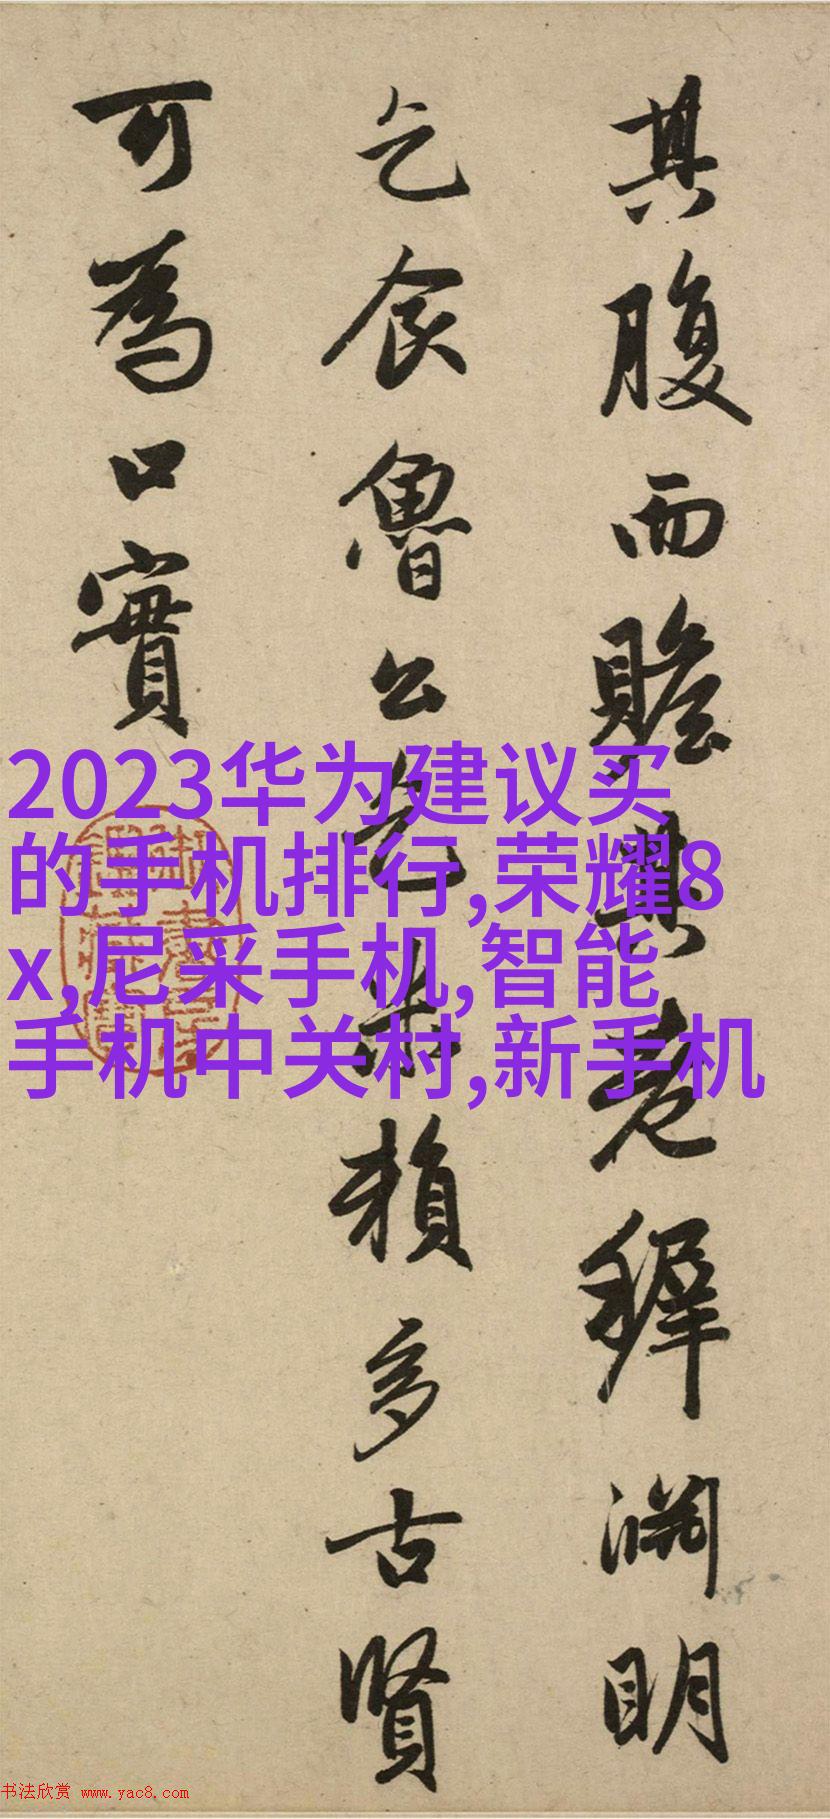 其腹而贍其老稺淵明
乞食魯公乞米賴多古賢
可為口實
2023华为建议买
的手机排行,荣耀8
x,尼采手机,智能
手机中关村,新手机
书法欣赏 www.yac8.com